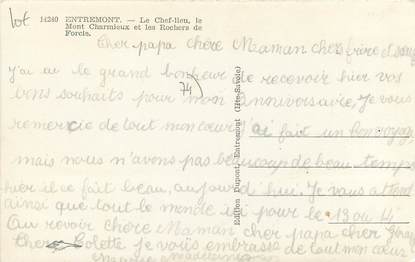 lot
14240 ENTREMONT. — Le Chef-lieu, le
Mont Charmieux et les Rochers de
Forcle.
74)
Cher papa chere Maman cher frère et
J'ai eu le grand bonheur de recevoir hier vos
bons souhaits pour mon anniversaire, Je vous
remercie de tout mon cœur j'ai fait un bon
mais nous n'avons pas beaucoup de beau temps
hier il a fait beau, aujourd hui. Je vous attend
ainsi que tout le monde ici pour le 13 ou 14
Au revoir chere Maman cher papa cher
chere Colette je vous embrasse de tout mon cœur
Madeleine
Edition Dupont, Entremont (Hte-Savoie)